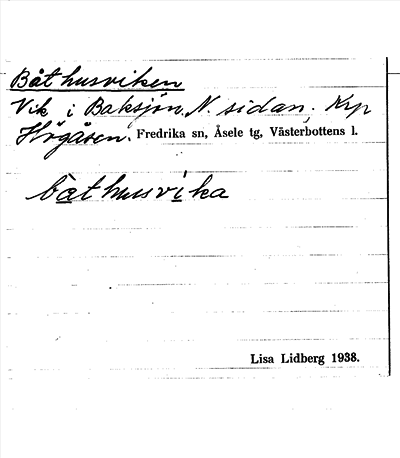 Båthusviken
Vik i Baksjön. N. sidan. Krp
Högåsen. Fredrika sn, Åsele tg, Västerbottens l.
bàthusvika
Lisa Lidberg 1938.